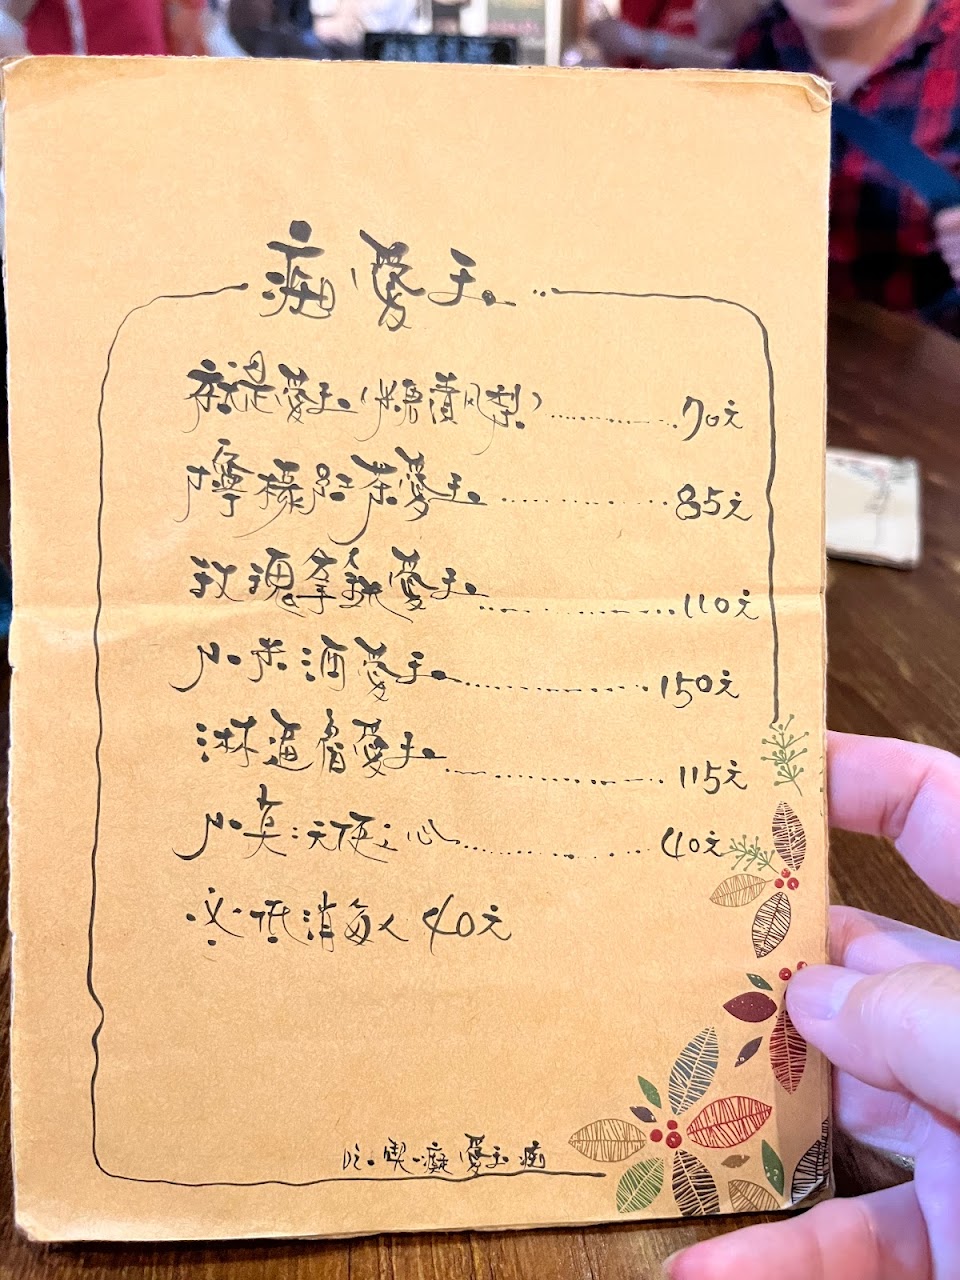 痴愛玉
就是愛玉(糖漬凤梨)............70元
檸檬紅茶愛玉............85元
玫瑰拿鐵愛玉............110元
小米酒愛玉............150元
淋逼魯愛玉............115元
小莫:天使之心............40元
※低消每人40元
吃.喫.癡愛玉